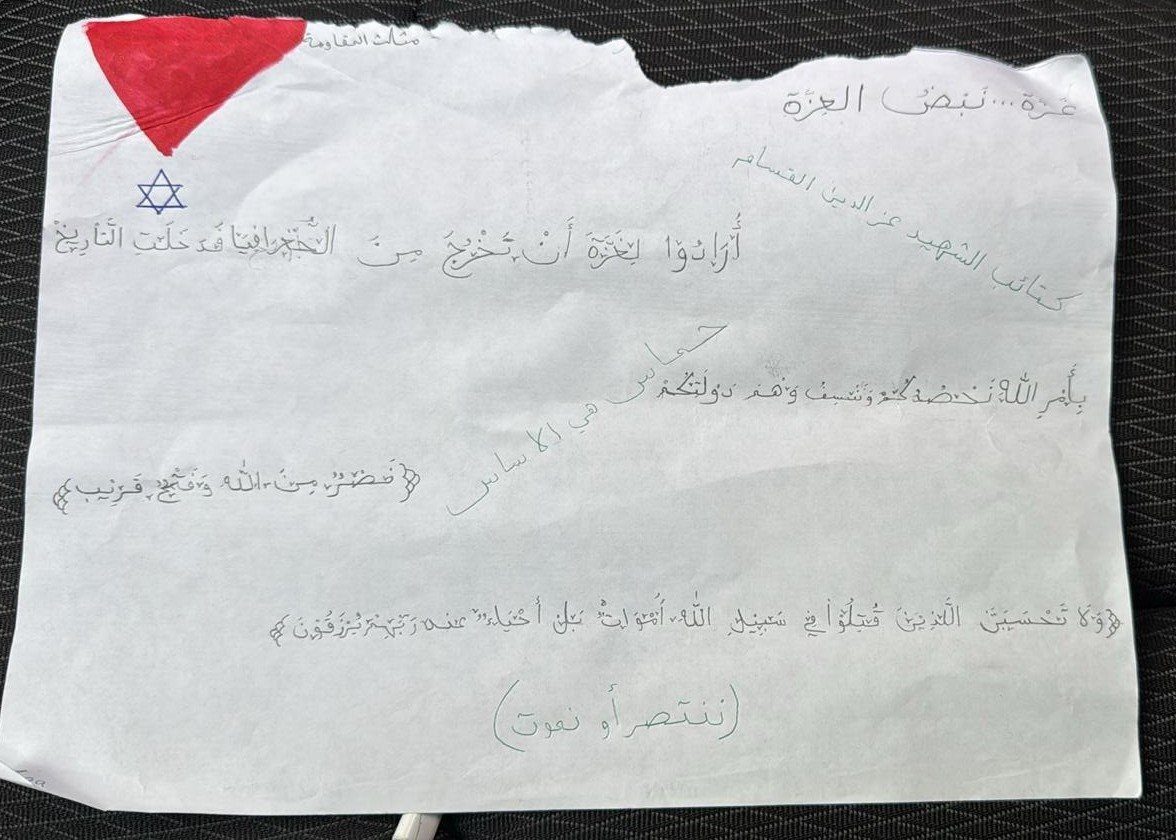 مثلث المقاومة
غَزة... نَبضُ العِزَّة
كتائب الشهيد عز الدين القسام
أَرَادُوا لِغَزَّةَ أَنْ تَخْرُجَ مِنَ الجُّغْرَافْيَا فَدَخَلَتِ التَّأرِيخْ
حماس هي الاساس
بِأَمْرِ اللّٰه نَحْصُدكُمْ وَنَنْسِفُ وَهْمَ دَوْلَتِكُمْ
﴿نَصْرٌ مِنَ اللّٰه وَفَتْحٌ قَرِيب﴾
﴿وَلَا تَحْسَبَنَّ الَّذِينَ قُتِلُوْا فِي سَبِيْلِ اللّٰه أَمْوَاتٌ بَلْ أَحْيَاءٌ عند رَبِّهِمْ يُرْزَقُوْنَ﴾
(ننتصر أو نموت)